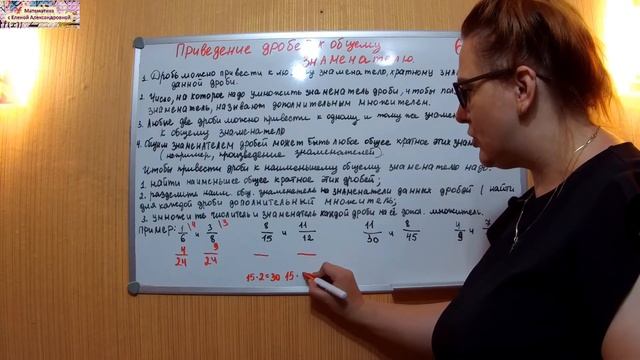 Математика
с Еленой Александровной
Приведение дробей к общему
знаменателю.
1. Дробь можно привести к любому знаменателю, кратному
данной дроби.
2. Число, на которое надо умножить знаменатель дроби, чтобы
знаменатель, называют дополнительным множителем.
3. Любые две дроби можно привести к одному и тому же
к общему знаменателю
4. Общим знаменателем дробей может быть любое общее кратное этих
(например, произведение знаменателей).
Чтобы привести дроби к наименьшему общему знаменателю надо:
1. найти наименьшее общее кратное этих дробей;
2. разделить наим. общ. знаменатель на знаменатели данных дробей ( найти
для каждой дроби дополнительный множитель;
3. умножить числитель и знаменатель каждой дроби на её доп. множитель.
Пример: 1/6 |4 и 3/8 |3 8/15 и 11/12 11/30 и 8/45 4/9 и
4/24 9/24
15·2=30 15·